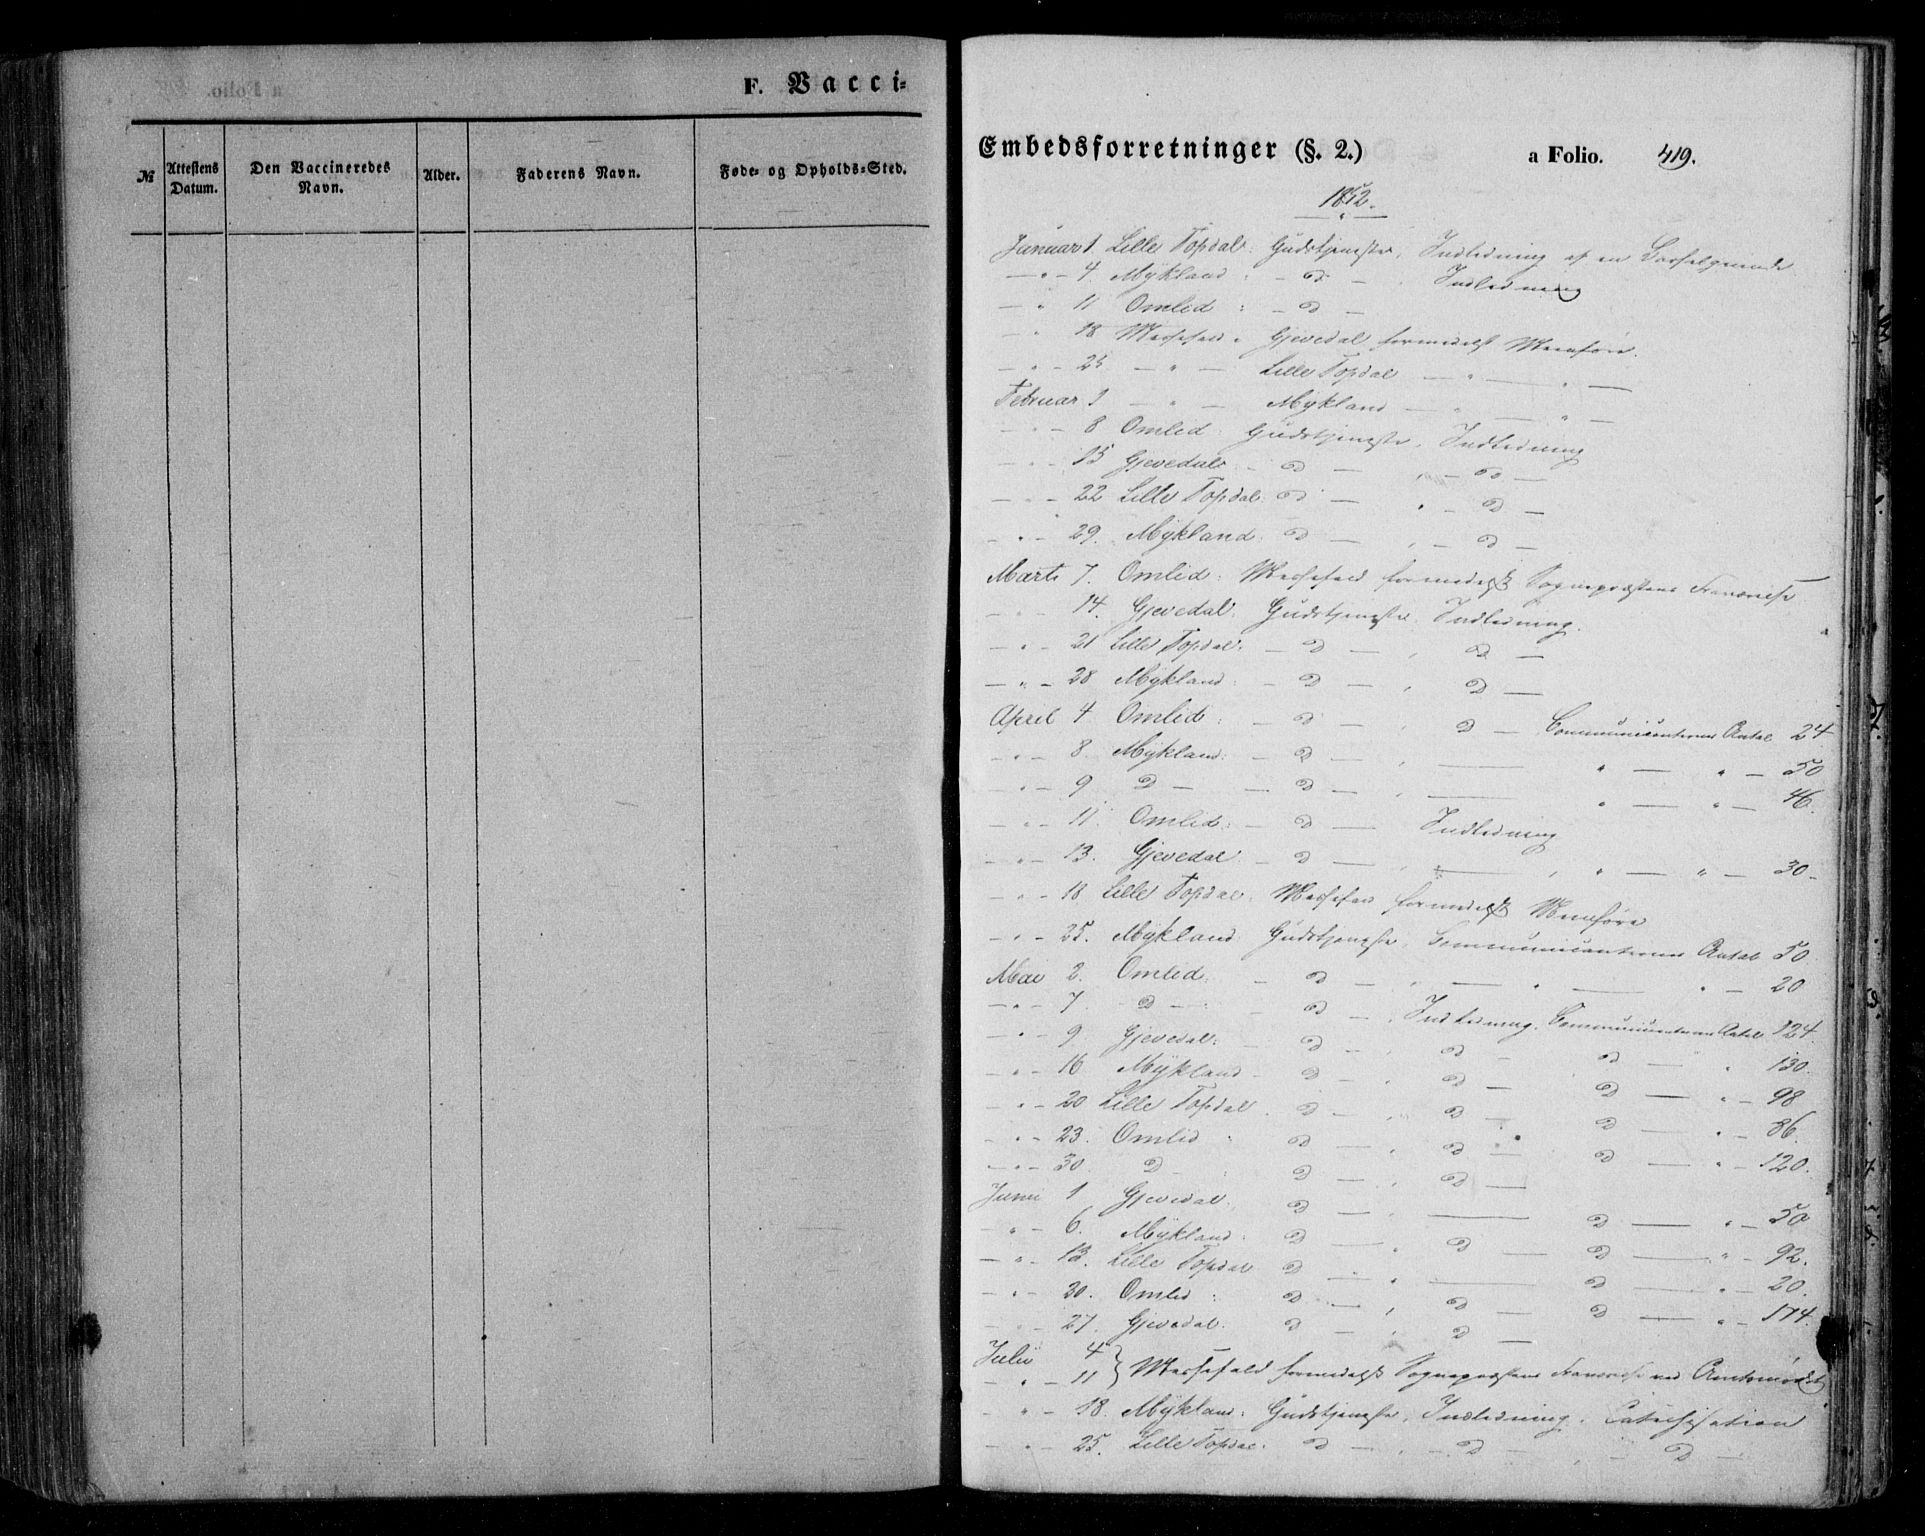 F. Vacci-
№ Attestens Datum. Den Vaccineredes Navn. Alder. Faderens Navn. Føde- og Opholds-Sted.
Embedsforretninger (§. 2.) a Folio. 419.
1852.
Januar 1. Lille Topdal: Gudstjeneste, Indledning af en Barselqvinde
— " — 4. Mykland : — D — , Indledning
— " 11 Omlid : — D —
— " 18 Messefald i Gjevedal formedelst Meenføre.
— " — 25 — " — Lille Topdal — " — " —
Februar 1 — " — Mykland — " — " —
— " — 8 Omlid : Gudstjeneste, Indledning
— " — 15 Gjevedal: — D — , — D —
— " — 22 Lille Topdal: D — , — D —
— " — 29. Mykland: D — , — D —
Marts 7. Omlid : Messefald formedelst Sognepræstens Fraværelse
— " — 14. Gjevedal: Gudstjeneste, Indledning.
— " — 21 Lille Topdal: — D — , D —
— " — 28 Mykland: — D — , D —
April 4 Omlid : — D — , D — Communicanternes Antal 24
— " — 8. Mykland: — D — , — " — " — 50
— " — 9 D — — D — , — " — " — 46.
— " — 11. Omlid : — D — Indledning
— " — 13. Gjevedal: — D — , — , " — " — 30 -
— " — 18 Lille Topdal: Messefald formedelst Meenføre
— " — 25. Mykland: Gudstjeneste, Communicanternes Antal 50.
Mai 2. Omlid: — D — " — " — " — 20
— " — 7. D — : — D — , Indledning, Communicanternes Antal 124.
— " — 9 Gjevedal: — D — , D — D — " 130.
— " — 16 Mykland — D — , D — D — " — 98
— " — 20 Lille Topdal. D — , D — D — " — 86.
— " — 23. Omlid : D — , D — D — " — 120.
— " — 30. D — : D — , D —
Juni 1 Gjevedal: D — , — D — " — 50
— " — 6. Mykland: D — " D — D — " — 92.
— " — 13. Lille Topdal D — " — D — " — 20.
— " — 20. Omlid : D — , D — D — " — 174.
— " — 27. Gjevedal: D — , D —
Juli 4
— " — 11 } Messefald formedelst Sognepræstens Fraværelse ved Amtsmødet
— " — 18. Mykland: Gudstjeneste, Indledning, Catechisation
— " — 25. Lille Topdal: D — , — D — , D —